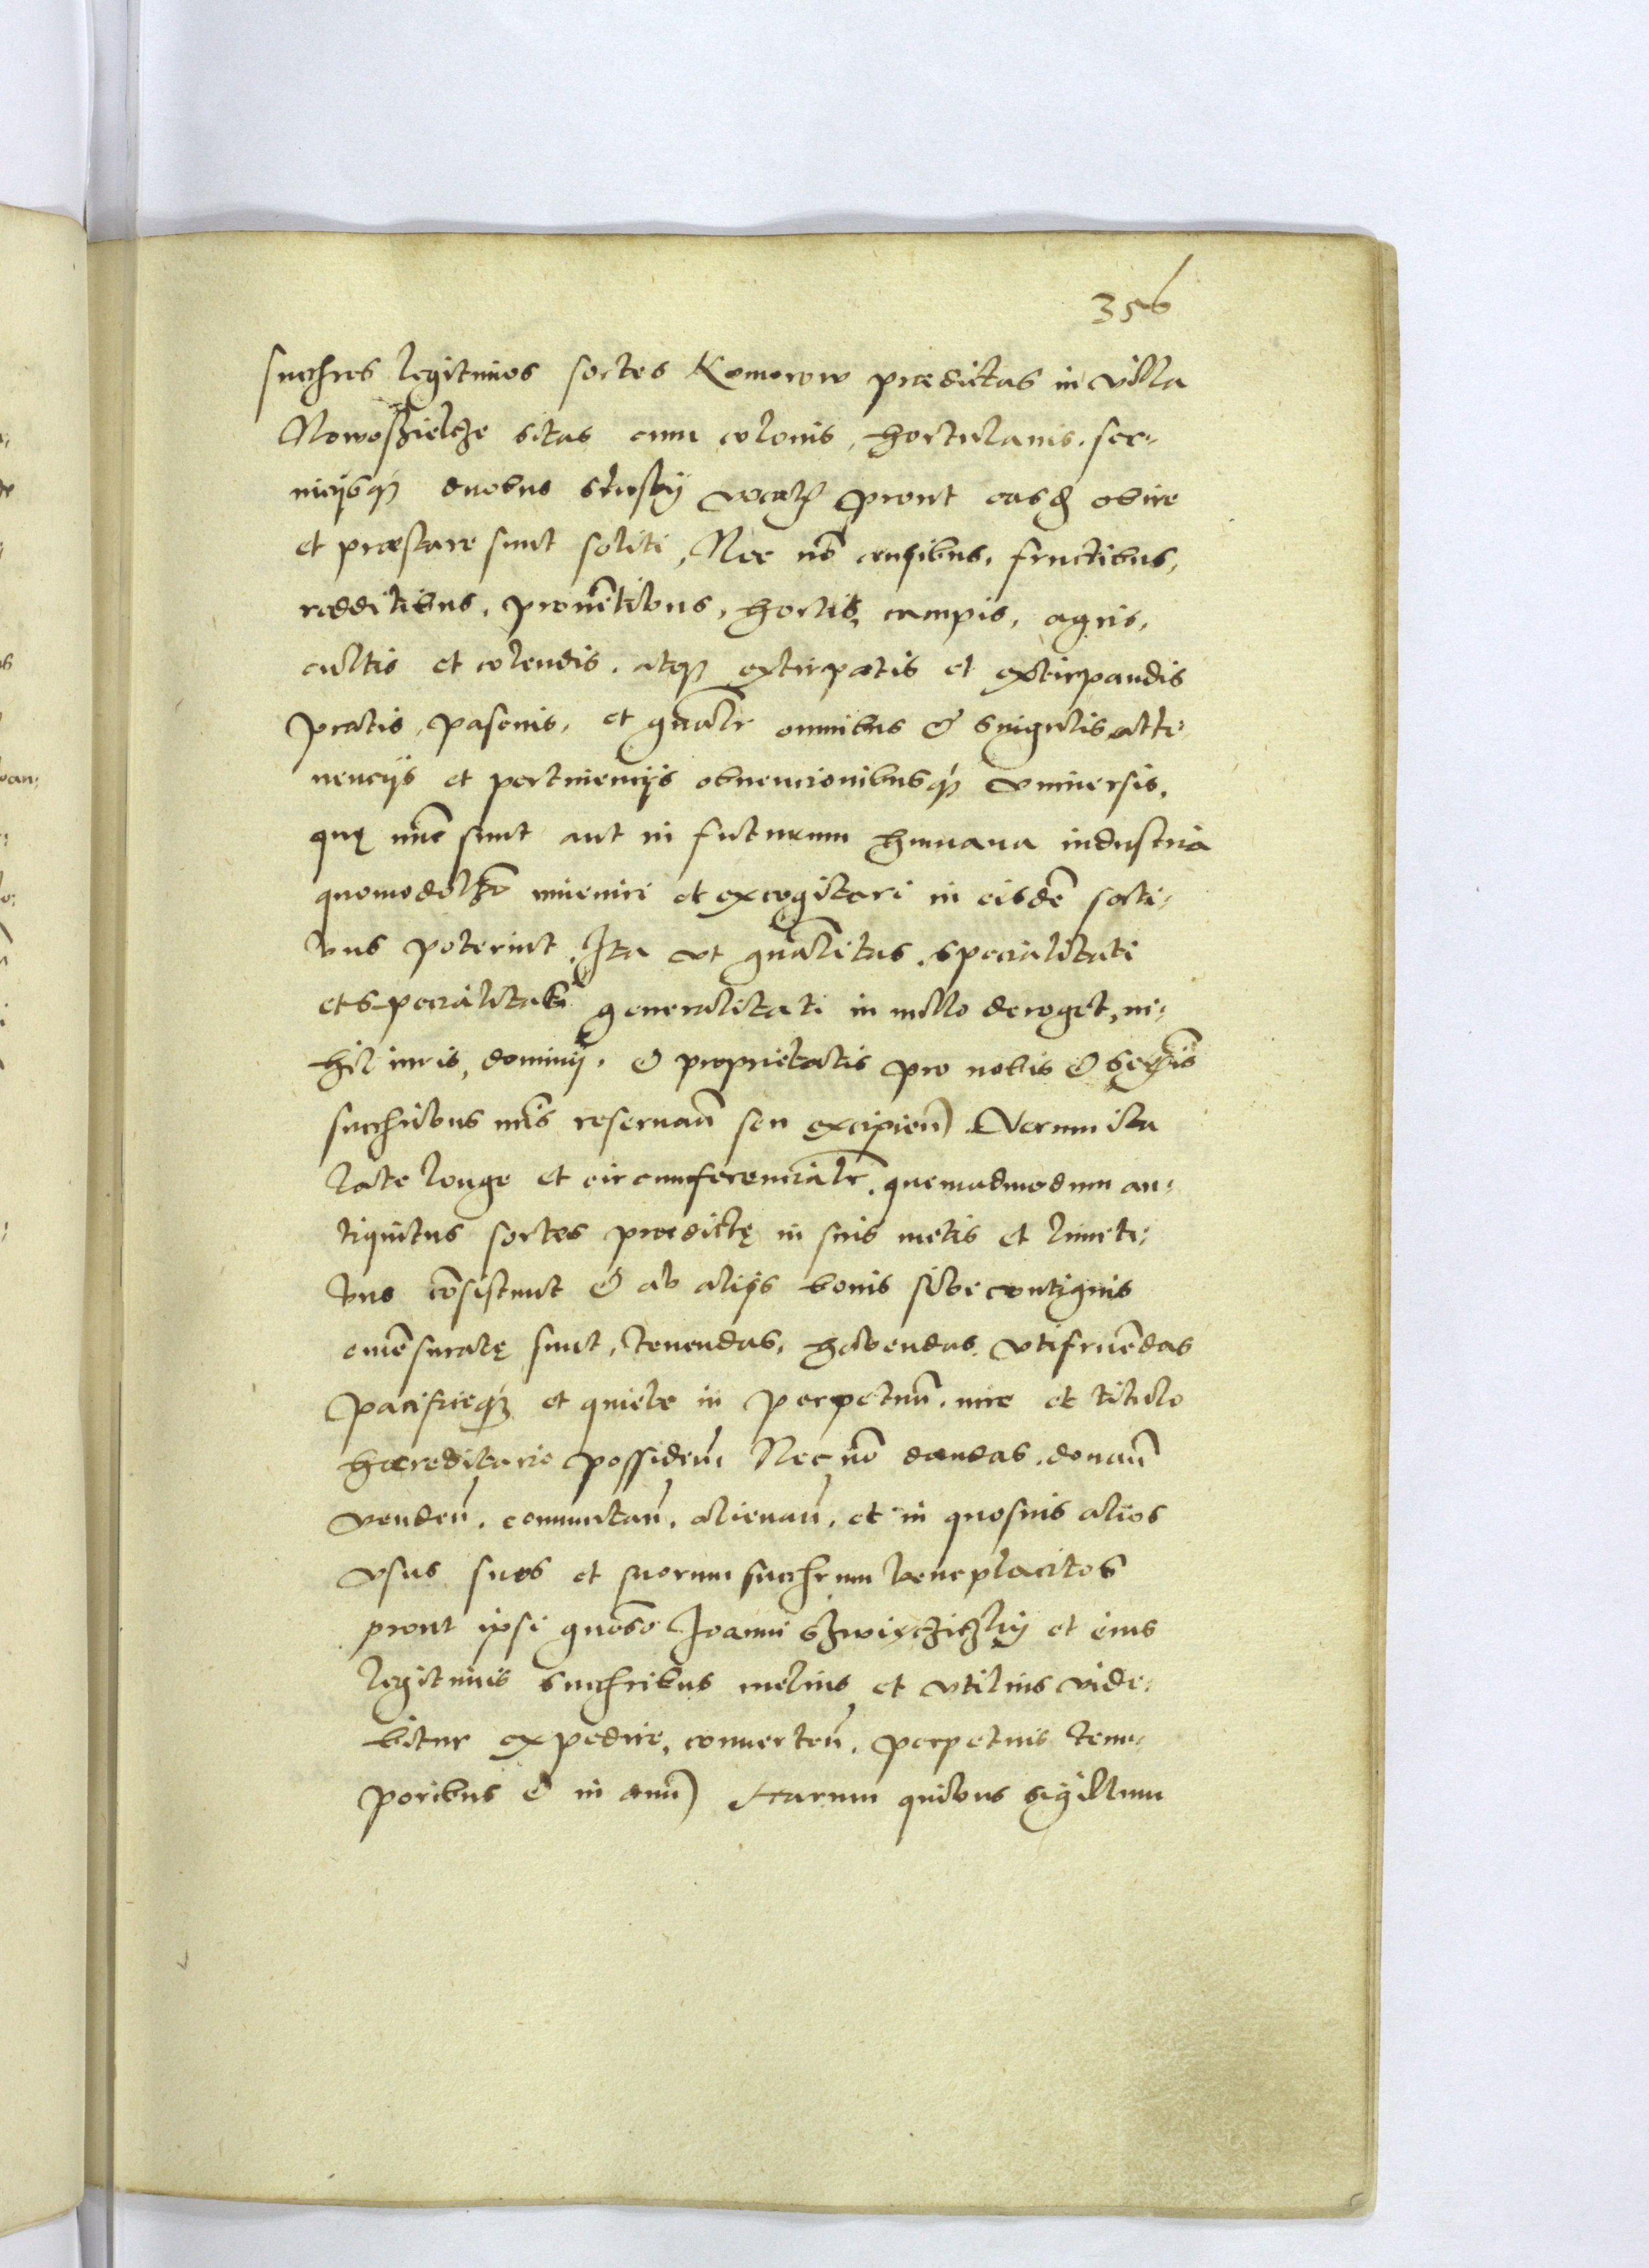 356
succhres legitimos sortes Komorow prædictas in villa
Nowoszielcze sitas cum colonis, hortulanis, ser-
uicijsq duobus vocat prout easd obire
et præstare sunt soliti, Nec nō censibus, fructibus,
redditibus, prouētibus, hortis, campis, agris,
cultis et colendis, atq extirpatis et extirpandis
pratis, pascuis, et gñalr omnibus & singulis atti-
nencijs et pertinencijs obuencionibusq vniuersis,
quę nūc sunt aut in futurum humana industria
quomodolbz inueniri et excogitari in eisdē sorti-
bus poterint. Ita vt gñalitas specialitati
et specialitas generalitati in nullo deroget, ni-
hil iuris, dominij, & proprietatis pro nobis &
succhribus nr̄is reseruań seu excipień. Verum ita
late longe et circumferencialr, quemadmodum an-
tiquitus sortes prædictę in suis metis et limiti-
bus cōsistunt & ab alijs bonis sibi contiguis
emēsuratę sunt, tenendas, habendas vtifruēdas
pacificeq et quiete in perpetuū, iure et titulo
hæreditario possideń Nec nō dandas, donań
vendeń, commutań, alienań, et in quosuis alios
vsus suos et suorum succhrum beneplacitos
prout ipsi gnoso Joanni et eius
legitimis succhribus melius et vtilius vide-
bitur expedire, conuerteń, perpetuis tem-
poribus & in æuū) Harum quibus sigillum